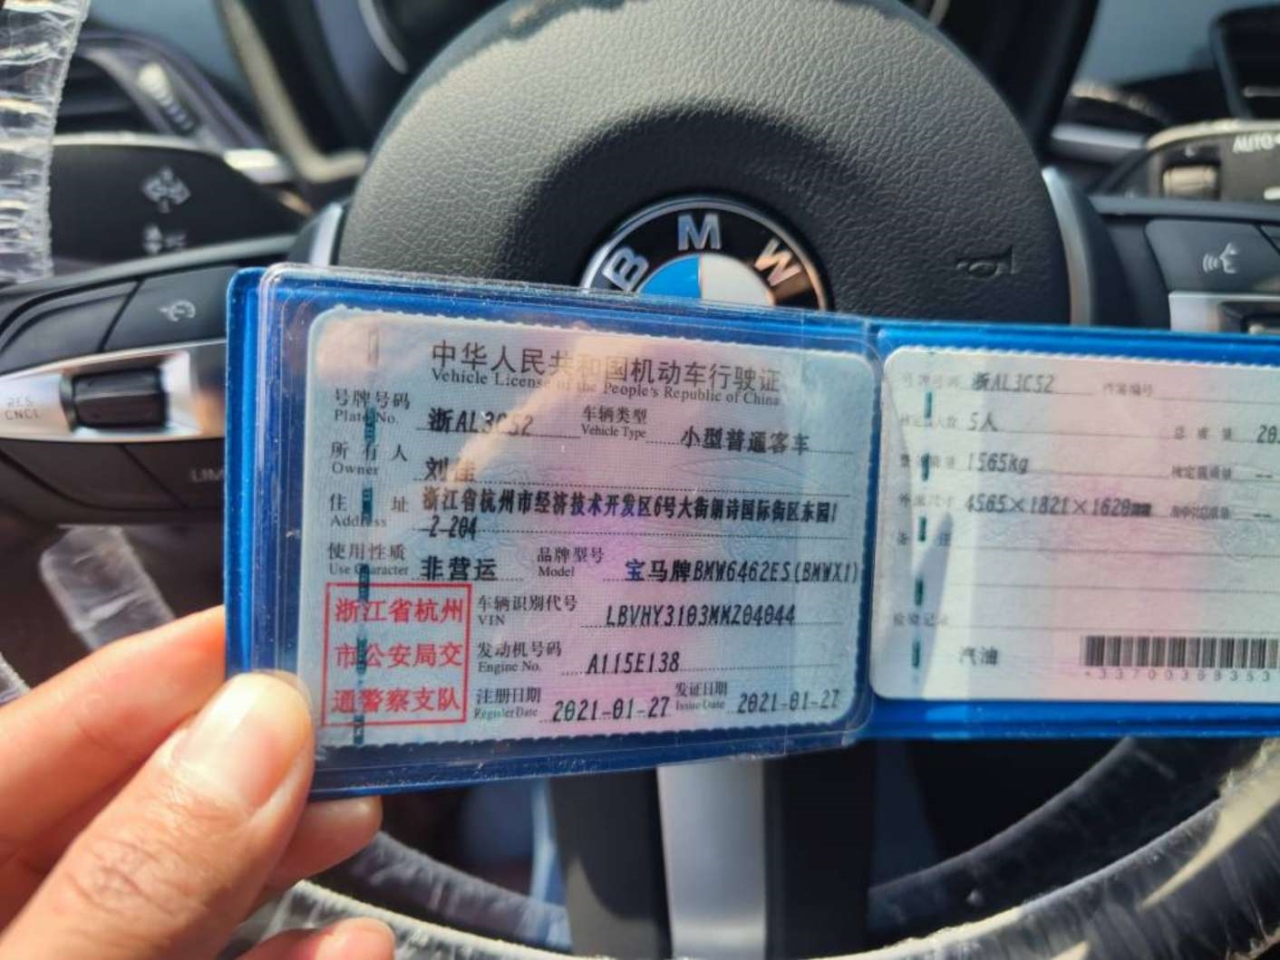 BMW
AUTO
RES
CNCL
LIM
中华人民共和国机动车行驶证
Vehicle License of the People's Republic of China
号牌号码 浙AL3C52 车辆类型 小型普通客车
Plate No. Vehicle Type
所有人 刘佳
Owner
住址 浙江省杭州市经济技术开发区6号大街朗诗国际街区东园1
Address 2-204
使用性质 非营运 品牌型号 宝马牌BMW6462ES(BMWX1)
Use Character Model
浙江省杭州
市公安局交
通警察支队
车辆识别代号 LBVHY3103MMZ04044
VIN
发动机号码 A115E138
Engine No.
注册日期 2021-01-27 发证日期 2021-01-27
Register Date Issue Date
号牌号码 浙AL3C52 档案编号
核定载人数 5人 总质量 20
整备质量 1565kg 核定载质量 --
外廓尺寸 4565×1821×1620mm --
备注
检验记录
汽油